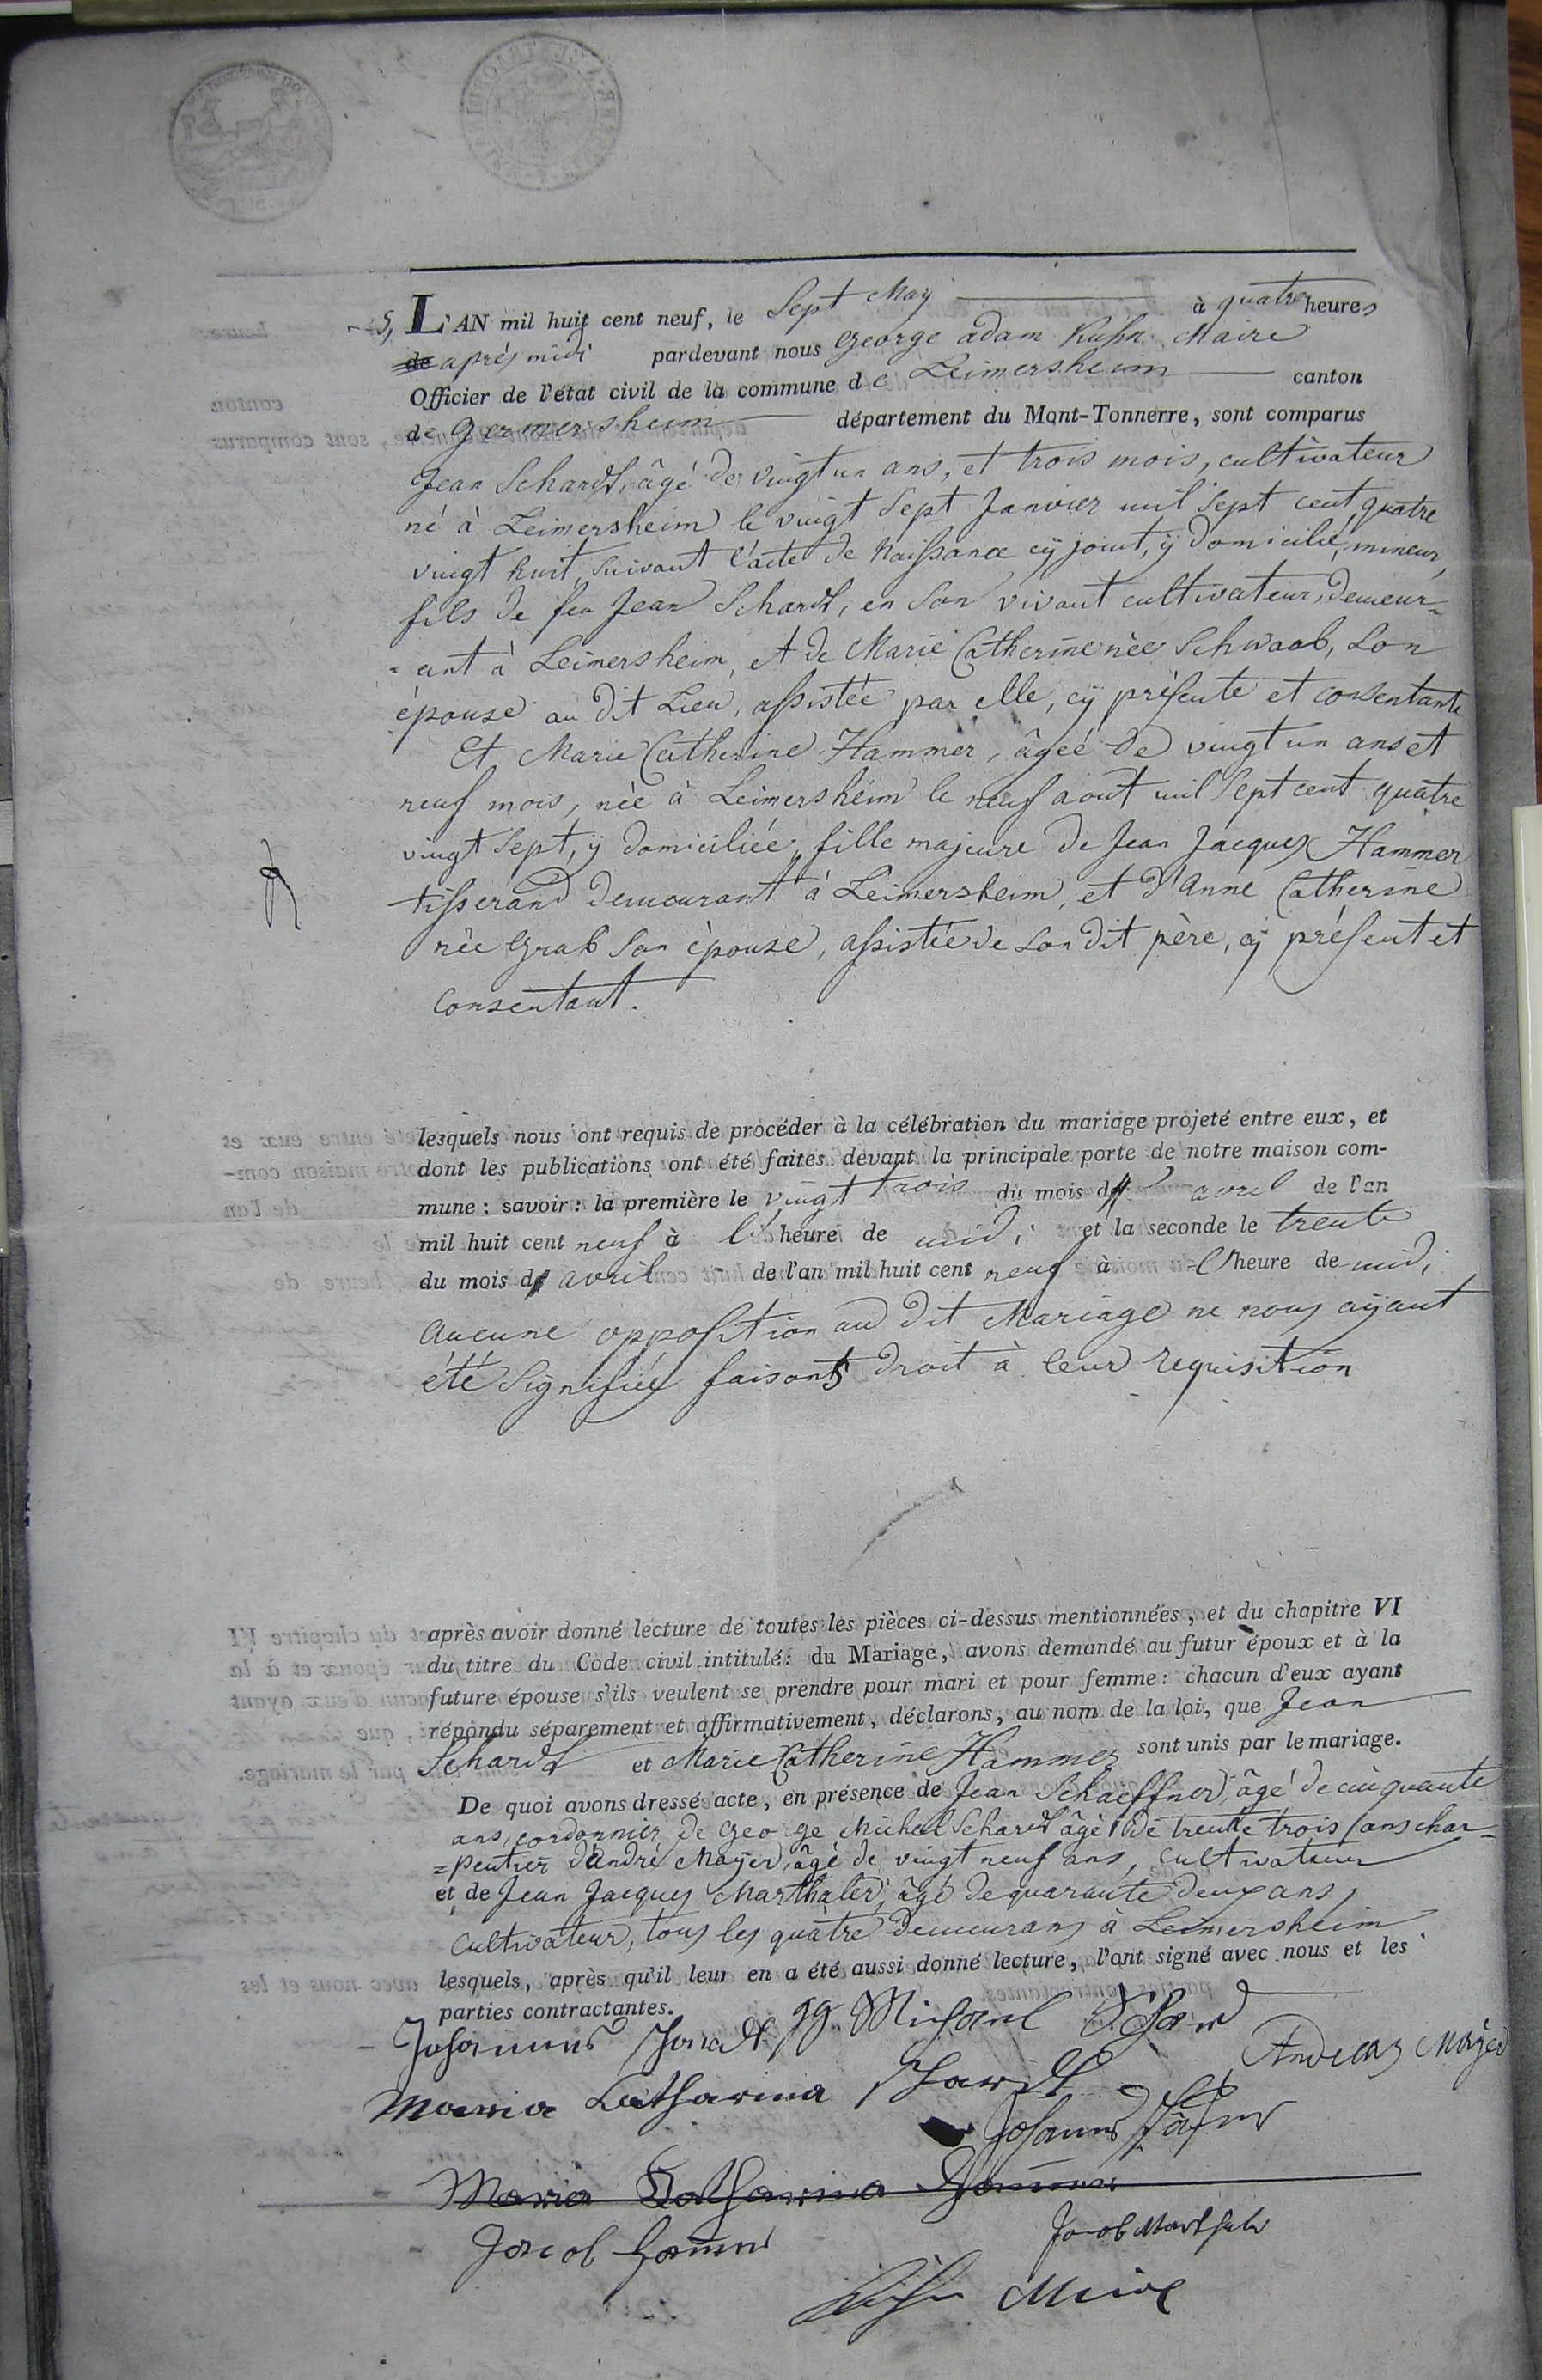 5, L'AN mil huit cent neuf, le Sept May à quatre heures
de aprés midi pardevant nous George adam Kuhn Maire
Officier de l'état civil de la commune de Leimersheim canton
de Germersheim département du Mont-Tonnerre, sont comparus
Jean Schardt, âgé de vingt un ans, et trois mois, cultivateur
né à Leimersheim le vingt Sept Janvier mil Sept cent quatre
vingt huit, suivant l'acte de Naissance cÿ joint, ÿ domicilié, mineur,
fils de feu Jean Schardt, en Son vivant cultivateur, demeur=
=ant à Leimersheim, et de Marie Catherine née Schwaab, Son
épouse au dit Lieu, assistée par elle, cÿ présente et consentante
Et Marie Catherine Hammer, âgée de vingt un ans et
neuf mois, née à Leimersheim le neuf aout mil Sept cent quatre
vingt Sept, ÿ domiciliée, fille majeure de Jean Jacques Hammer
tisserand demeurant à Leimersheim, et d'Anne Catherine
née Grab Son épouse, assistée de Son dit père, cÿ présent et
consentant.
lesquels nous ont requis de procéder à la célébration du mariage projeté entre eux, et
dont les publications ont été faites devant la principale porte de notre maison com-
mune: savoir: la première le vingt trois du mois d' avril de l'an
mil huit cent neuf à l'heure de midi et la seconde le trente
du mois d' avril de l'an mil huit cent neuf à l'heure de midi
Aucune opposition au dit Mariage ne nous aÿant
été Signifiée faisant droit à leur requisition
après avoir donné lecture de toutes les pièces ci-dessus mentionnées, et du chapitre VI
du titre du Code civil intitulé: du Mariage, avons demandé au futur époux et à la
future épouse s'ils veulent se prendre pour mari et pour femme: chacun d'eux ayant
répondu séparement et affirmativement, déclarons, au nom de la loi, que Jean
Schardt et Marie Catherine Hammer sont unis par le mariage.
De quoi avons dressé acte, en présence de Jean Schaeffner, âgé de cinquante
ans, cordonnier, de George Michel Schardt âgé de trente trois ans char=
=pentier d'André Mayer, âgé de vingt neuf ans, cultivateur
et de Jean Jacques Marthaler, âgé de quarante deux ans,
cultivateur, tous les quatre demeurans à Leimersheim
lesquels, après qu'il leur en a été aussi donné lecture, l'ont signé avec nous et les
parties contractantes.
Johannes Schardt gg Michael Schard
Andreas Mayer
Maria Catharina Schardt
Johannes
Maria Catharina Hammer
Jacob Hammer
Jacob Marthaler
Kuhn Maire